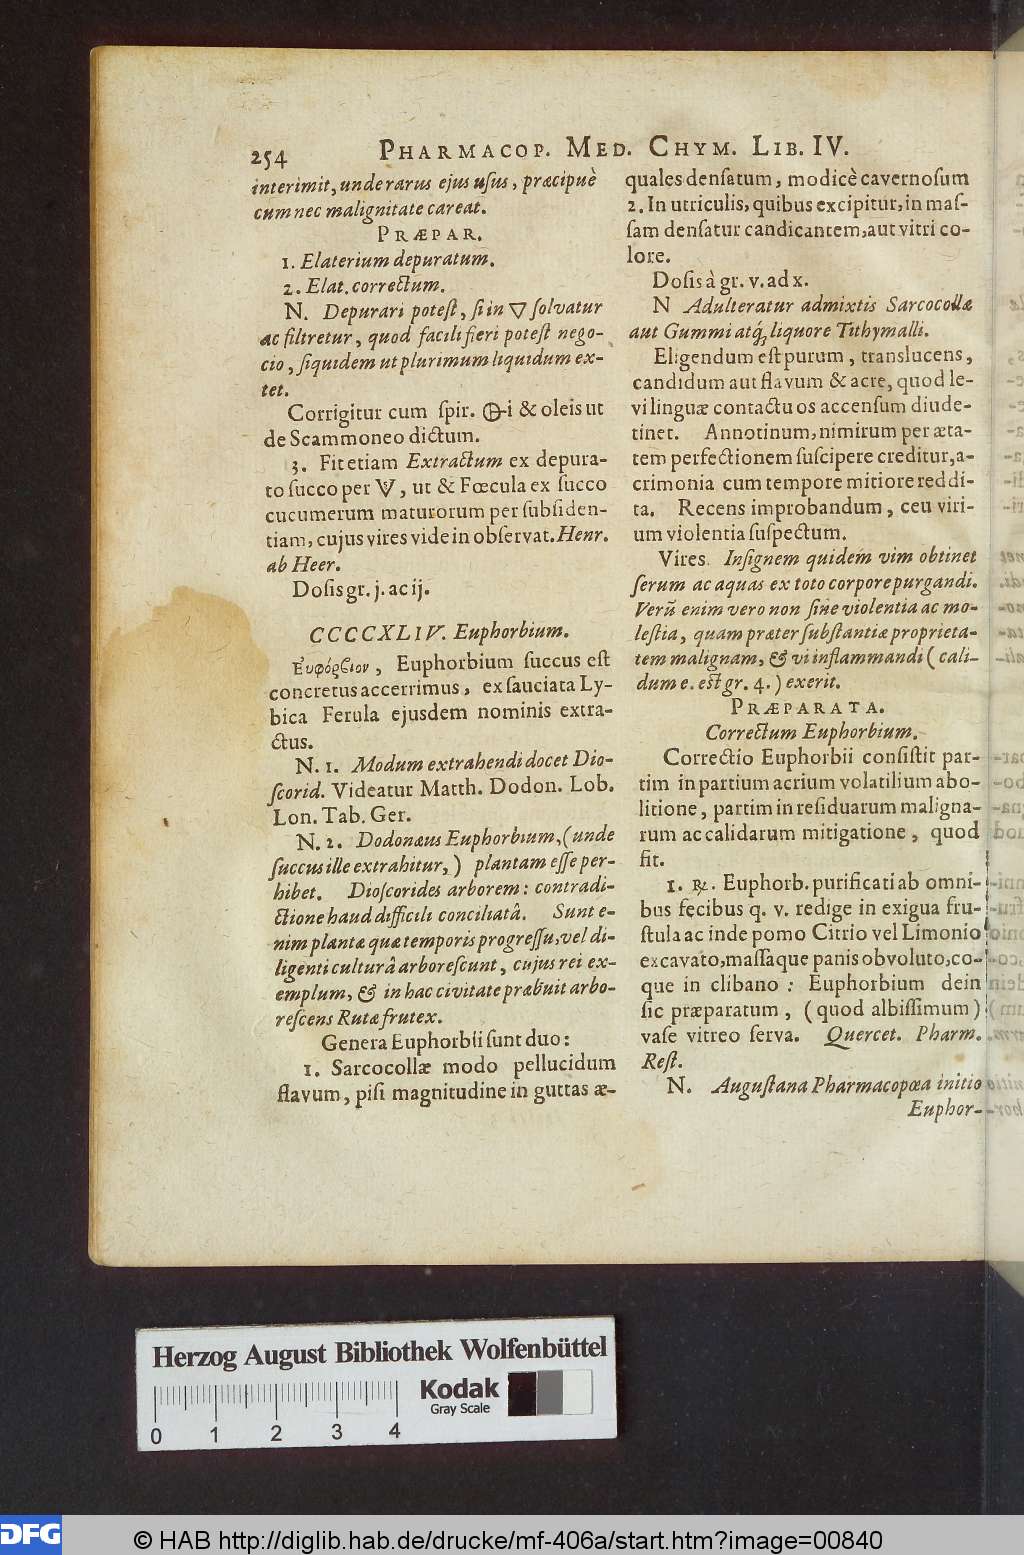 254 PHARMACOP. MED. CHYM. LIB. IV.
interimit, unde rarus ejus usus, præcipuè
cum nec malignitate careat.
PRÆPAR.
1. Elaterium depuratum.
2. Elat. correctum.
N. Depurari potest, si in 🜄 solvatur
ac filtretur, quod facili fieri potest nego-
cio, siquidem ut plurimum liquidum ex-
tet.
Corrigitur cum spir. 🜖-i & oleis ut
de Scammoneo dictum.
3. Fit etiam Extractum ex depura-
to succo per 🜈, ut & Fœcula ex succo
cucumerum maturorum per subsiden-
tiam, cujus vires vide in observat. Henr.
ab Heer.
Dosis gr. j. ac ij.
CCCCXLIV. Euphorbium.
Ἐυφόρβιον, Euphorbium succus est
concretus accerrimus, ex sauciata Ly-
bica Ferula ejusdem nominis extra-
ctus.
N. 1. Modum extrahendi docet Dio-
scorid. Videatur Matth. Dodon. Lob.
Lon. Tab. Ger.
N. 2. Dodonæus Euphorbium, (unde
succus ille extrahitur,) plantam esse per-
hibet. Dioscorides arborem: contradi-
ctione haud difficili conciliatâ. Sunt e-
nim plantæ quæ temporis progressu, vel di-
ligenti culturâ arborescunt, cujus rei ex-
emplum, & in hac civitate præbuit arbo-
rescens Rutæ frutex.
Genera Euphorbii sunt duo:
1. Sarcocollæ modo pellucidum
flavum, pisi magnitudine in guttas æ-
quales densatum, modicè cavernosum
2. In utriculis, quibus excipitur, in mas-
sam densatur candicantem, aut vitri co-
lore.
Dosis à gr. v. ad x.
N Adulteratur admixtis Sarcocollæ
aut Gummi atq́; liquore Tithymalli.
Eligendum est purum, translucens,
candidum aut flavum & acre, quod le-
vi linguæ contactu os accensum diu de-
tinet. Annotinum, nimirum per æta-
tem perfectionem suscipere creditur, a-
crimonia cum tempore mitiore reddi-
ta. Recens improbandum, ceu viri-
um violentia suspectum.
Vires. Insignem quidem vim obtinet
serum ac aquas ex toto corpore purgandi.
Verũ enim vero non sine violentia ac mo-
lestia, quam præter substantiæ proprieta-
tem malignam, & vi inflammandi (cali-
dum e. est gr. 4.) exerit.
PRÆPARATA.
Correctum Euphorbium.
Correctio Euphorbii consistit par-
tim in partium acrium volatilium abo-
litione, partim in residuarum maligna-
rum ac calidarum mitigatione, quod
fit.
1. ℞. Euphorb. purificati ab omni-
bus fęcibus q. v. redige in exigua fru-
stula ac inde pomo Citrio vel Limonio
excavato, massaque panis obvoluto, co-
que in clibano: Euphorbium dein
sic præparatum, (quod albissimum)
vase vitreo serva. Quercet. Pharm.
Rest.
N. Augustana Pharmacopœa initio
Euphor-
Herzog August Bibliothek Wolfenbüttel
Kodak
Gray Scale
0 1 2 3 4
DFG
© HAB http://diglib.hab.de/drucke/mf-406a/start.htm?image=00840